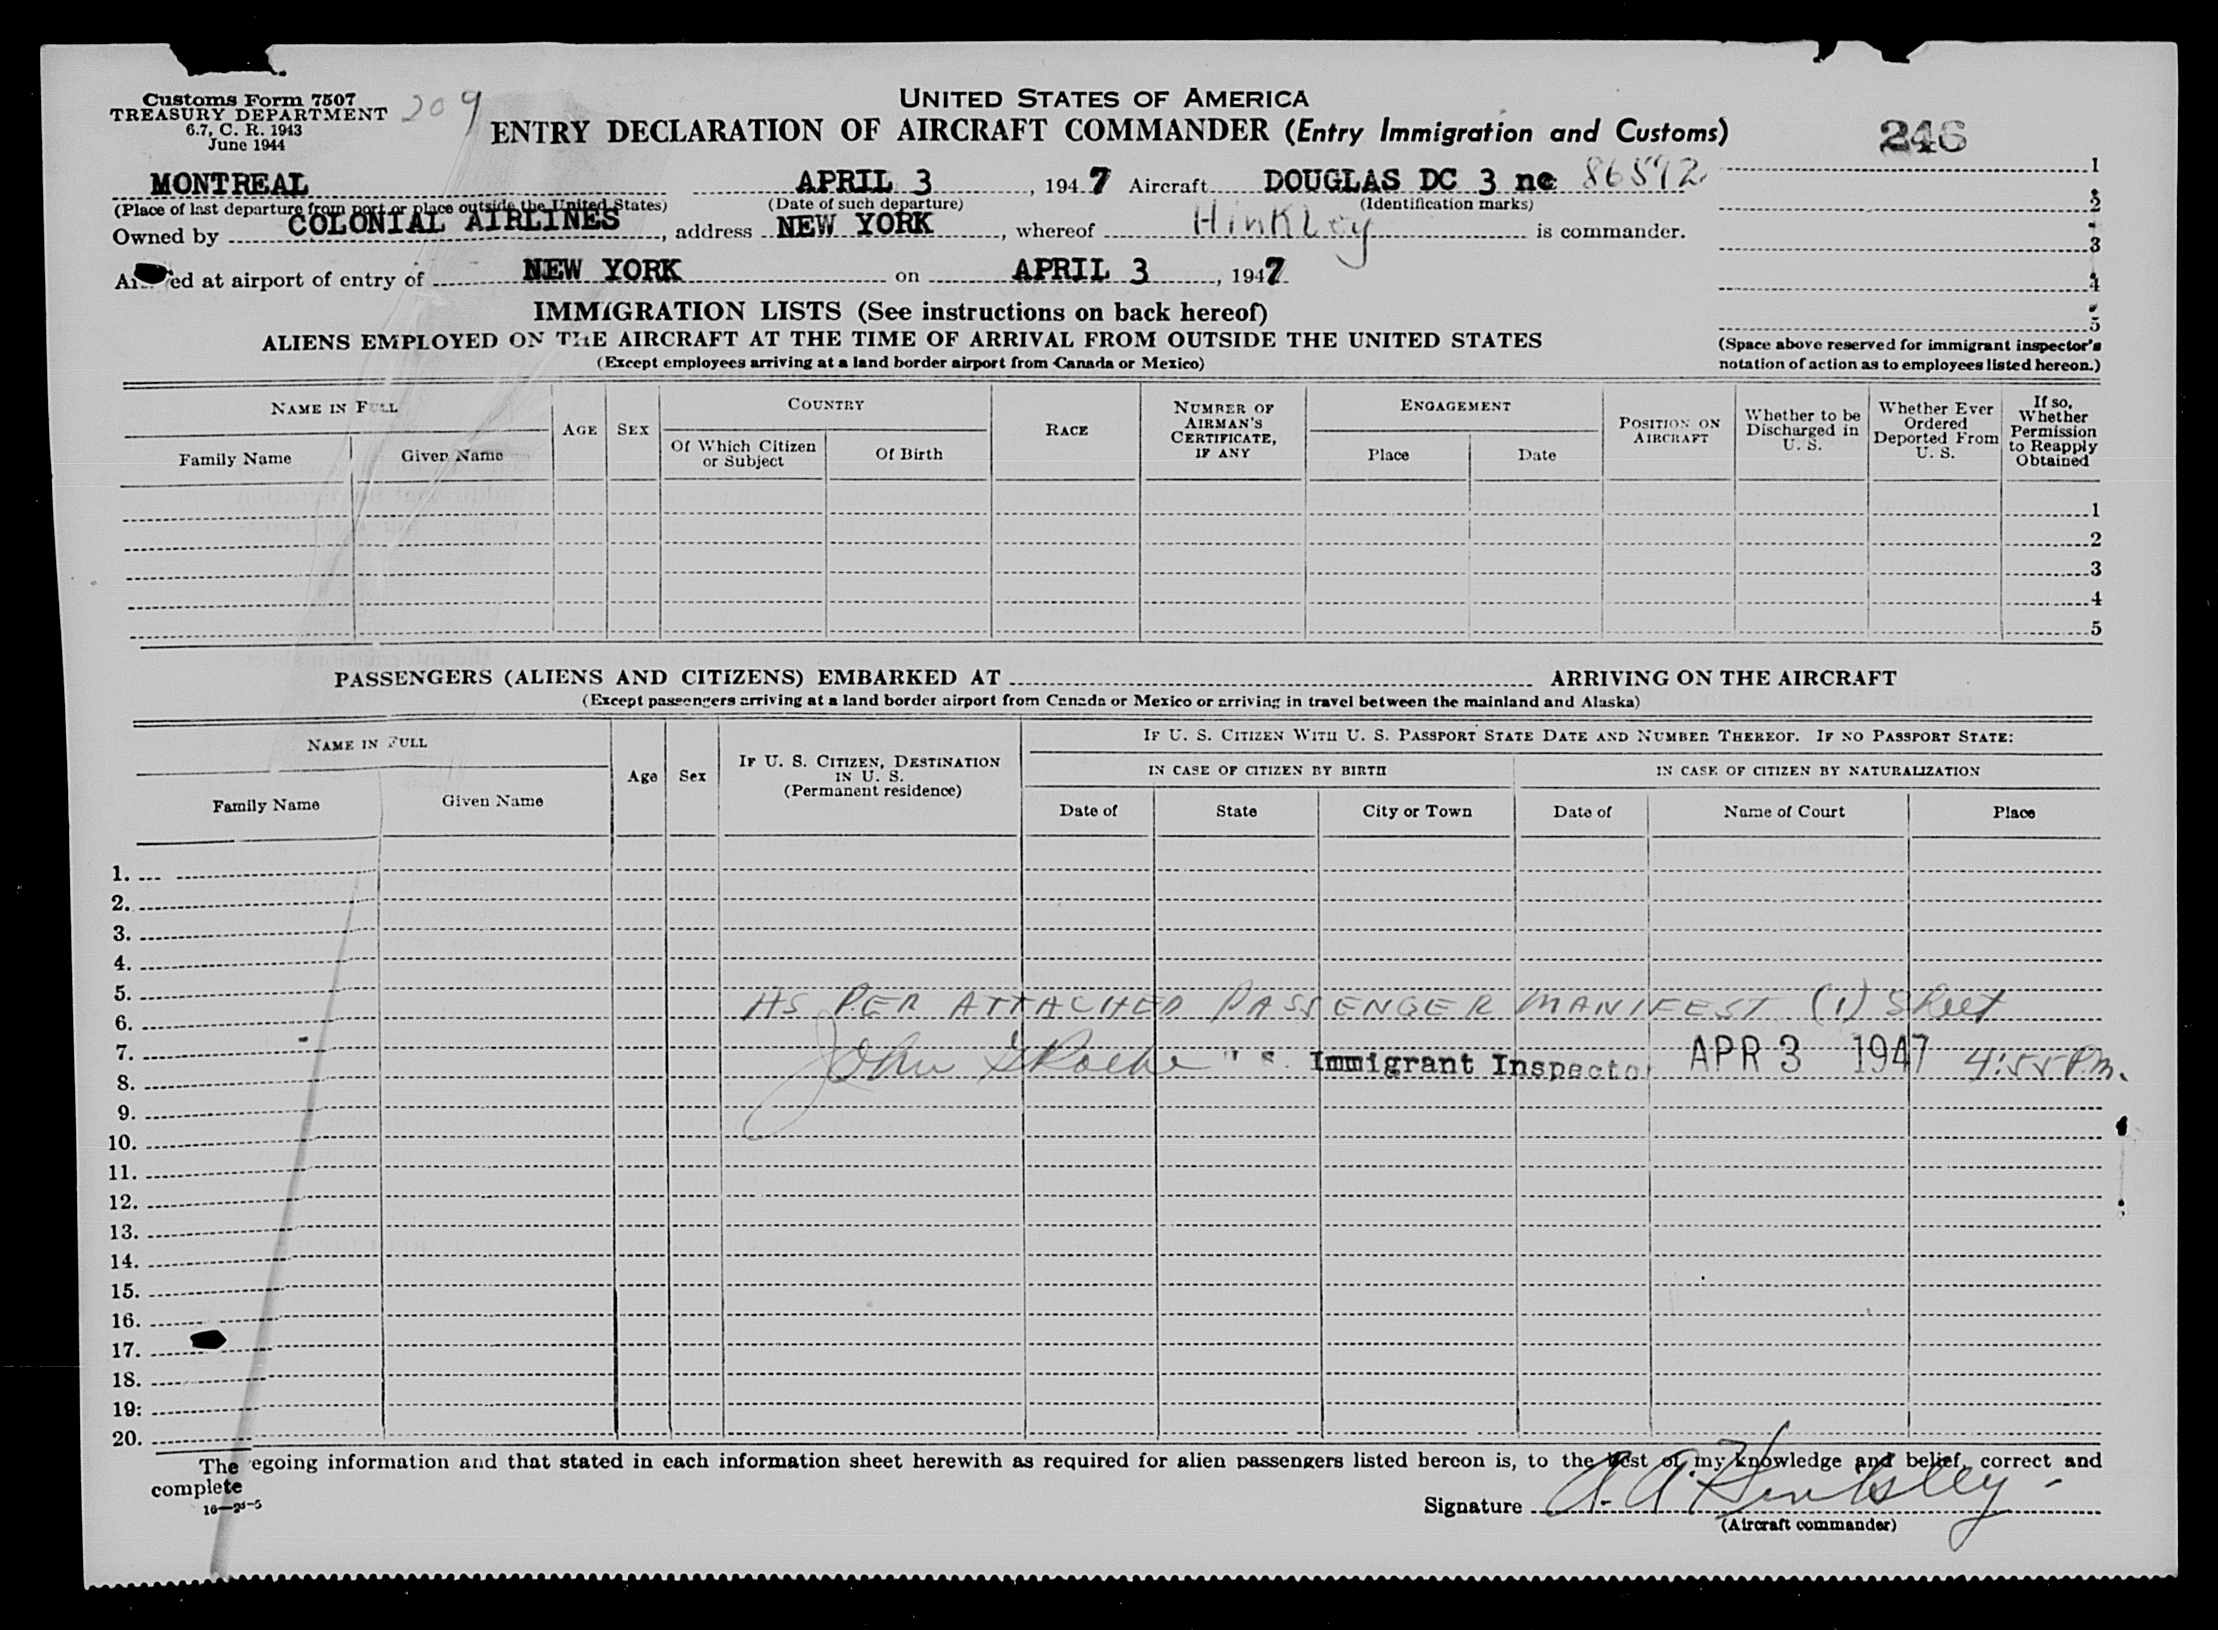 Customs Form 7507
TREASURY DEPARTMENT
6.7, C. R. 1943
June 1944
209
UNITED STATES OF AMERICA
ENTRY DECLARATION OF AIRCRAFT COMMANDER (Entry Immigration and Customs)
246
MONTREAL APRIL 3, 1947 Aircraft DOUGLAS DC 3 nc 86592
(Place of last departure from port or place outside the United States) (Date of such departure) (Identification marks)
Owned by COLONIAL AIRLINES, address NEW YORK, whereof Hinkley is commander.
ed at airport of entry of NEW YORK on APRIL 3, 1947
1
2
3
4
5
(Space above reserved for immigrant inspector's
notation of action as to employees listed hereon.)
IMMIGRATION LISTS (See instructions on back hereof)
ALIENS EMPLOYED ON THE AIRCRAFT AT THE TIME OF ARRIVAL FROM OUTSIDE THE UNITED STATES
(Except employees arriving at a land border airport from Canada or Mexico)
NAME IN FULL
Family Name
Given Name
AGE
SEX
COUNTRY
Of Which Citizen
or Subject
Of Birth
RACE
NUMBER OF
AIRMAN'S
CERTIFICATE,
IF ANY
ENGAGEMENT
Place
Date
POSITION ON
AIRCRAFT
Whether to be
Discharged in
U. S.
Whether Ever
Ordered
Deported From
U. S.
If so,
Whether
Permission
to Reapply
Obtained
1
2
3
4
5
PASSENGERS (ALIENS AND CITIZENS) EMBARKED AT ARRIVING ON THE AIRCRAFT
(Except passengers arriving at a land border airport from Canada or Mexico or arriving in travel between the mainland and Alaska)
NAME IN FULL
Family Name
Given Name
Age
Sex
IF U. S. CITIZEN, DESTINATION
IN U. S.
(Permanent residence)
IF U. S. CITIZEN WITH U. S. PASSPORT STATE DATE AND NUMBER THEREOF. IF NO PASSPORT STATE:
IN CASE OF CITIZEN BY BIRTH
IN CASE OF CITIZEN BY NATURALIZATION
Date of
State
City or Town
Date of
Name of Court
Place
1.
2.
3.
4.
5.
AS PER ATTACHED PASSENGER MANIFEST (1) Sheet
6.
7.
John Roche Immigrant Inspector APR 3 1947 4:55 P.M.
8.
9.
10.
11.
12.
13.
14.
15.
16.
17.
18.
19:
20.
The egoing information and that stated in each information sheet herewith as required for alien passengers listed hereon is, to the best of my knowledge and belief, correct and
complete
Signature A. A. Hinkley
(Aircraft commander)